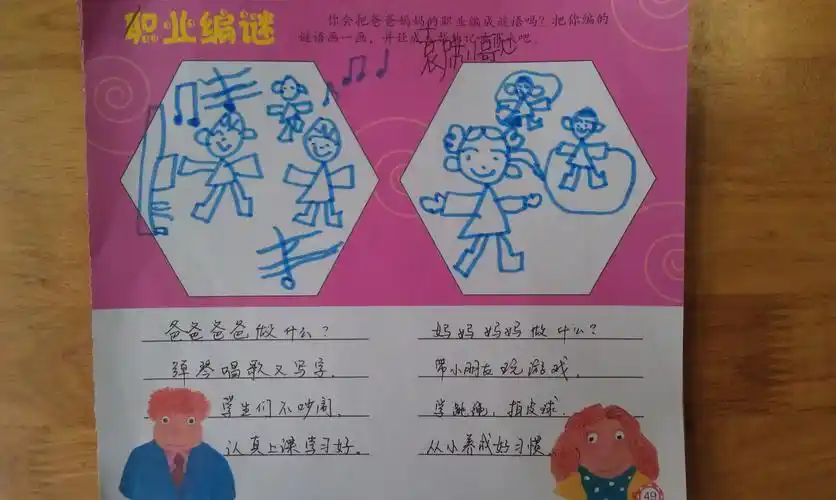 职业编谜
你会把爸爸妈妈的职业编成谜语吗？把你编的
谜语画一画，并让
吧。
爸爸爸爸做什么？
弹琴唱歌又写字。
学生们不吵闹。
认真上课学习好。
妈妈妈妈做什么？
带小朋友玩游戏。
学跳绳，拍皮球。
从小养成好习惯。
49